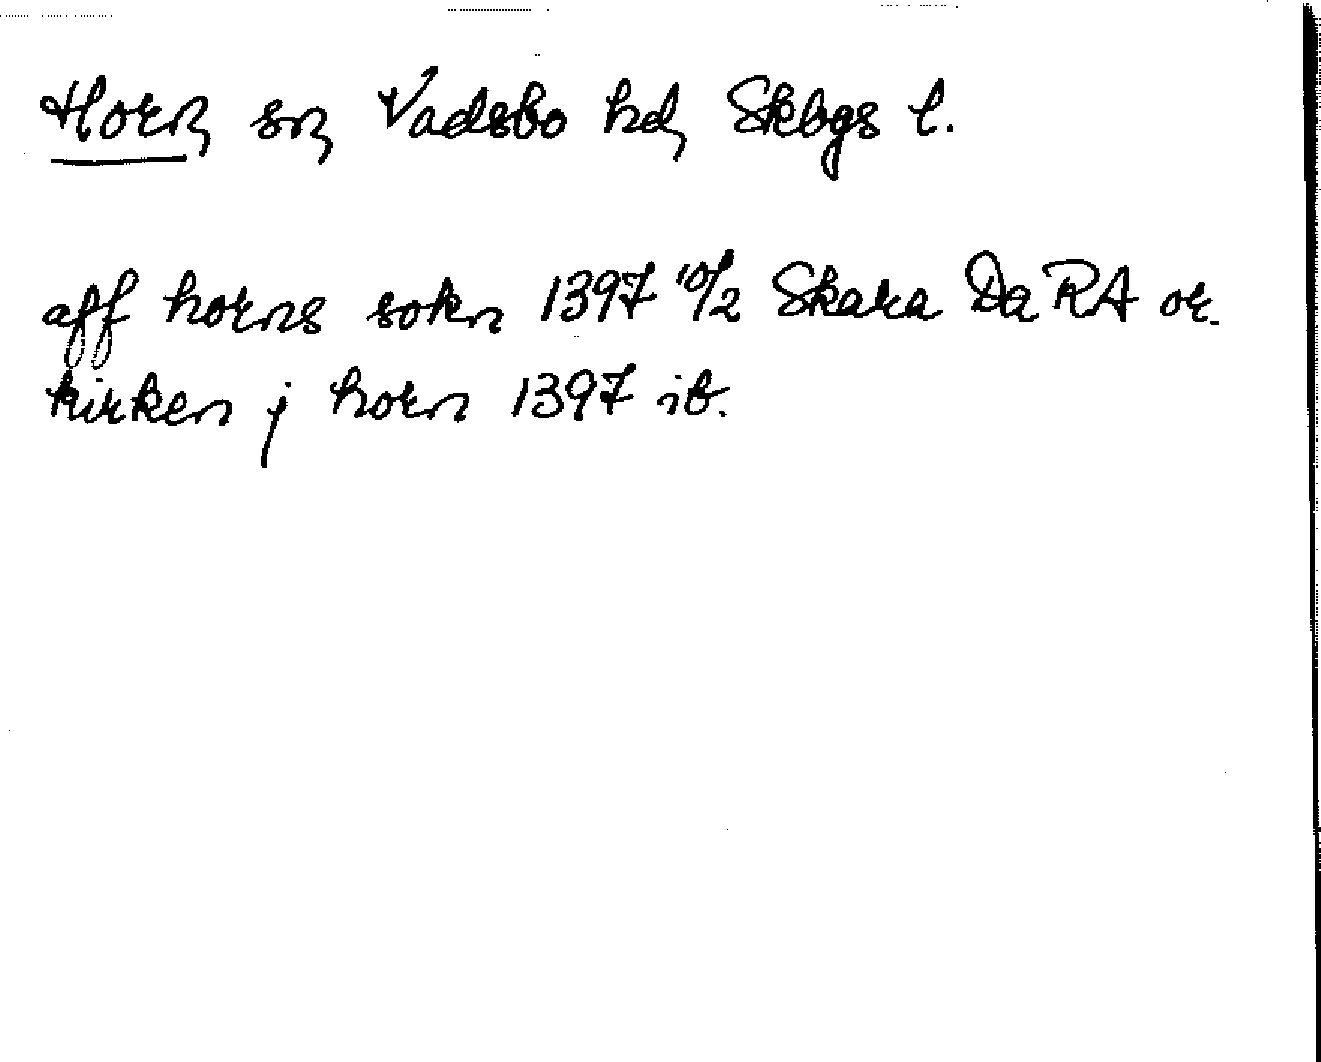 Horn, sn, Vadsbo hd, Skbgs l.
aff horns sokn 1397 10/2 Skara DaRA or.
kirken j horn 1397 ib.